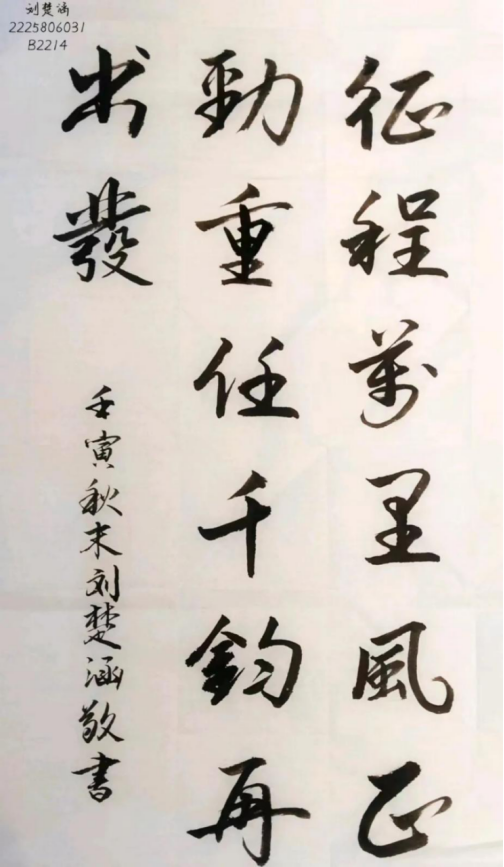 刘楚涵
2225806031
B2214
征程萬里風正
勁重任千鈞再
出發
壬寅秋末刘楚涵敬書